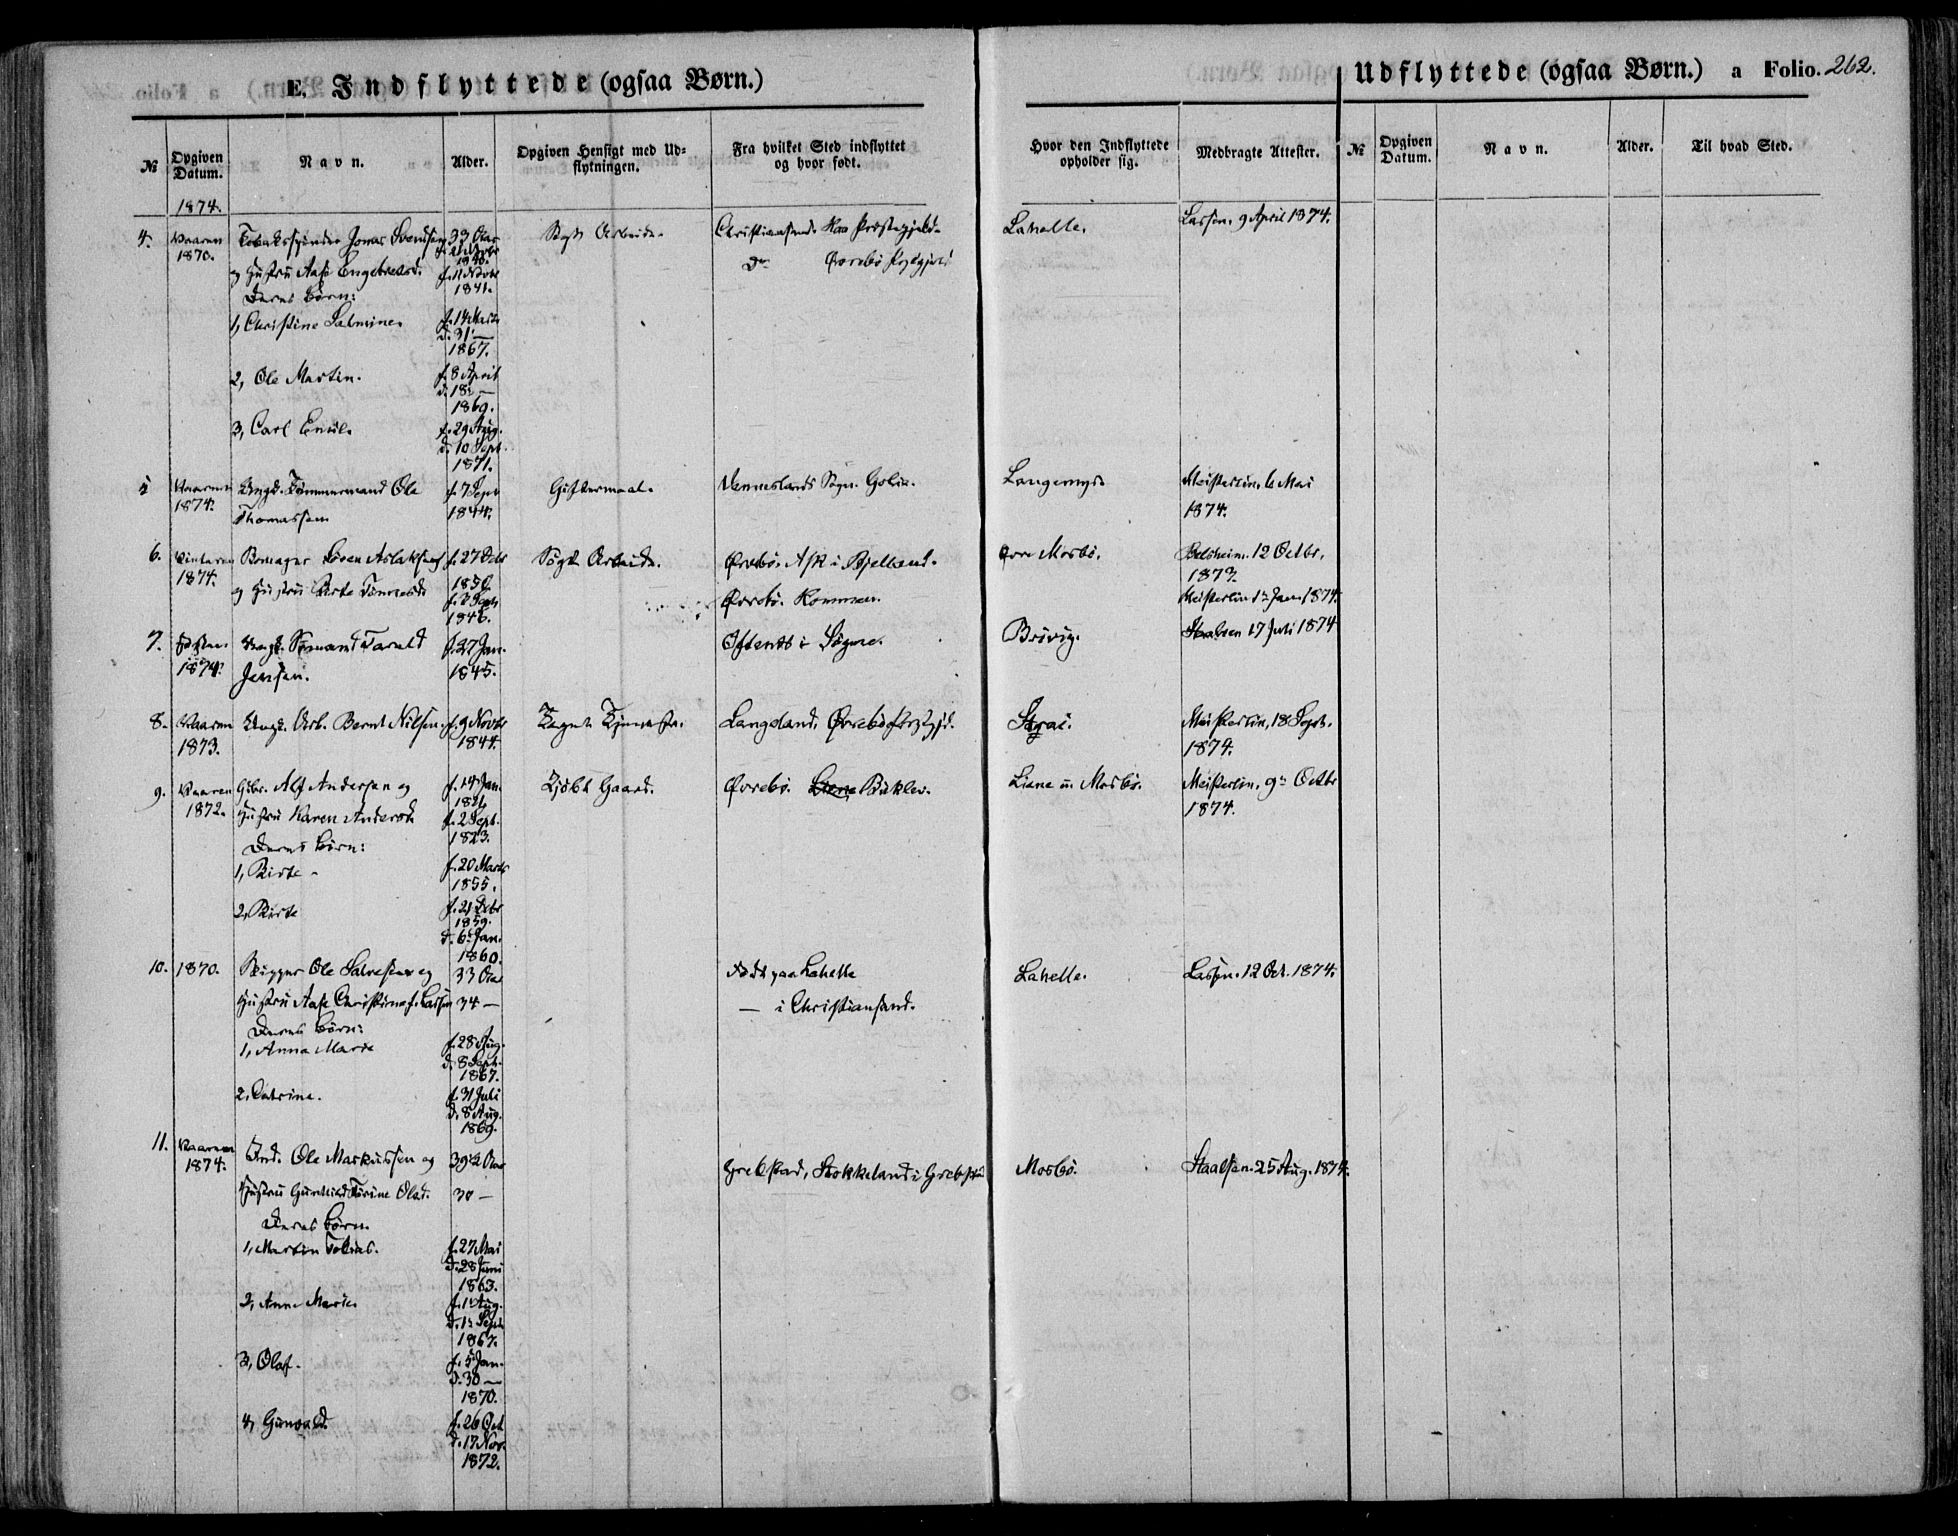 E. Indflyttede (ogsaa Børn.)
Udflyttede (ogsaa Børn.) a Folio. 262.
№ Opgiven Datum. Navn. Alder. Opgiven Hensigt med Udflytningen. Fra hvilket Sted indflyttet og hvor født. Hvor den Indflyttede opholder sig. Medbragte Attester. № Opgiven Datum. Navn. Alder. Til hvad Sted.
1874.
4. Vaaren Jonas Svendsen 33 Aar Søgt Arbeide. Christiansand. Lahelle. Lassen. 9 April 1874.
1870.
og Hustru Aase Engebretsd. f. 11 Do Øvrebø
1841.
Deres Børn:
1, Christine Salmine. f. 14 Marts
d. 31 —
1867.
2, Ole Martin. f. 8 April
d. 18 —
1869.
3, Carl Emil. f. 29 Aug.
d. 10 Sept.
1871.
5 Vaaren Ungk. Tømmermand Ole f. 7 Sept Giftermaal. Venneslands Sogn. Langemyr. Meisterlin. 6 Mai
1874. Thomassen 1844. 1874.
6. Vinteren Aslaksen f. 27 Søgt Arbeide. Øvrebø. Ask i Bjelland. Øvre Mosbø. 12 Octbr.
1874. 1850. 1873.
og Hustru Tønnesd. Øvrebø. Meisterlin 1 Jan. 1874.
1846.
7. Høsten Ungk. Sømand Tarald f. 27 Jan. i Søgne. Brøvig. Staalsen 17 Juli 1874
1874. Jensen. 1845.
8. Vaaren Ungk. Arb. Bernt Nilsen. f. 9 Novbr Tjeneste. Langeland, Øvrebø Strai. Meisterlin, 18 Sept.
1873. 1844. 1874.
9. Vaaren Gbr. Alf Andersen og f. 14 Jan. Kjøbt Gaard. Øvrebø. Liene u. Mosbø. Meisterlin. 9 Octbr
1872. Hustru Karen Andersd. f. 2 Sept. 1874.
1823.
Deres Børn:
1, Birte f. 20 Marts
1855.
2, Birte f. 21
1859.
d. 6 Jan.
1860.
10. 1870. Skipper Ole Salvesen og 33 Aar født paa Lahelle Lahelle. Lassen. 12 Oct. 1874.
Hustru Aase Christine f. Lassen 34 — — i Christiansand.
Deres Børn:
1, Anna Marie f. 28 Aug.
d. 8 Sept.
1867.
2, Catrine. f. 31 Juli
d. 8 Aug.
1869.
11. Vaaren Ind. Ole Markussen og 39½ Aar Grebstad, Stokkeland i Mosbø. Staalsen. 25 Aug. 1874.
1874.
Hustru Gunhild Olsd. 30 —
Deres Børn.
1, Martin Tobias. f. 27 Mai
d. 28 Juni
1863.
2, Anne Marie. f. 1 Aug.
d. 1 Sept
1867.
3, Olaf. f. 5 Jan.
d. 30 —
1870.
4, Gunvald. f. 26 Oct
d. 17 Nov.
1872.